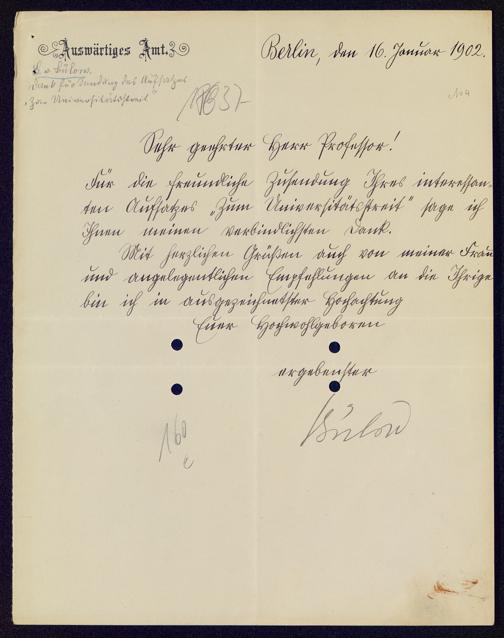 Auswärtiges Amt.
Berlin, den 16. Januar 1902.
B. v. Bülow.
Dank für Sendung des Aufsatzes
"Zum Universitätsstreit"
Sehr geehrter Herr Professor!
Für die freundliche Zusendung Ihres interessan-
ten Aufsatzes „Zum Universitätsstreit" sage ich
Ihnen meinen verbindlichsten Dank.
Mit herzlichen Grüßen auch von meiner Frau
und angelegentlichen Empfehlungen an die Ihrige
bin ich in ausgezeichnetster Hochachtung
Euer Hochwohlgeboren
ergebenster
Bülow
160